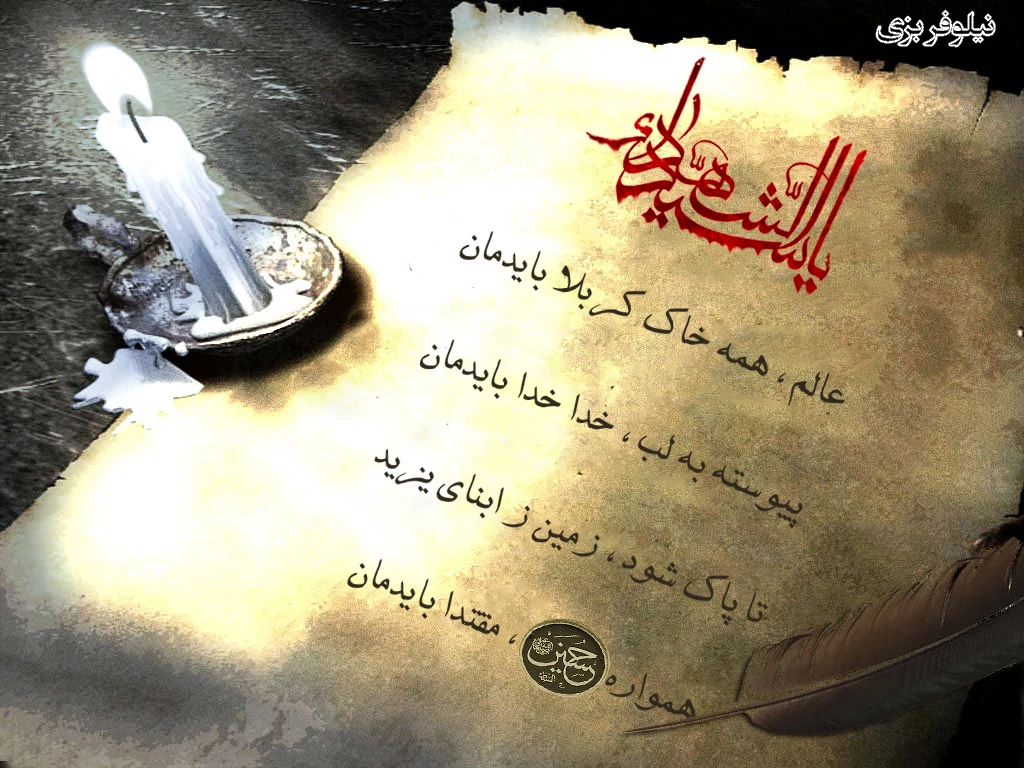 نیلوفر بزی
یا سید الشهداء
عالم ، همه خاک کربلا بایدمان
پیوسته به لب ، خدا خدا بایدمان
تا پاک شود ، زمین ز ابنای یزید
همواره حسین ، مقتدا بایدمان